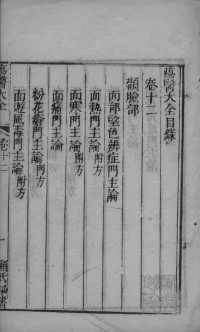 瘍醫大全目錄
卷十二
顴臉部
面部望色辨症門主論
面熱門主論附方
面寒門主論附方
面痛門主論
粉花瘡門主論附方
面遊風毒門主論附方
瘍醫大全
卷十二
一
顧氏秘書